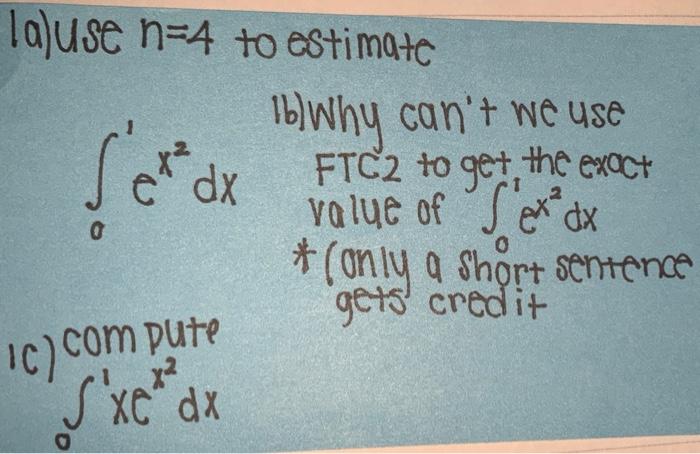 1a) use n=4 to estimate
∫₀¹ eˣ² dx
1b) Why can't we use
FTC2 to get the exact
value of ∫₀¹ eˣ² dx
* (only a short sentence
gets credit
1c) compute
∫₀¹ xeˣ² dx